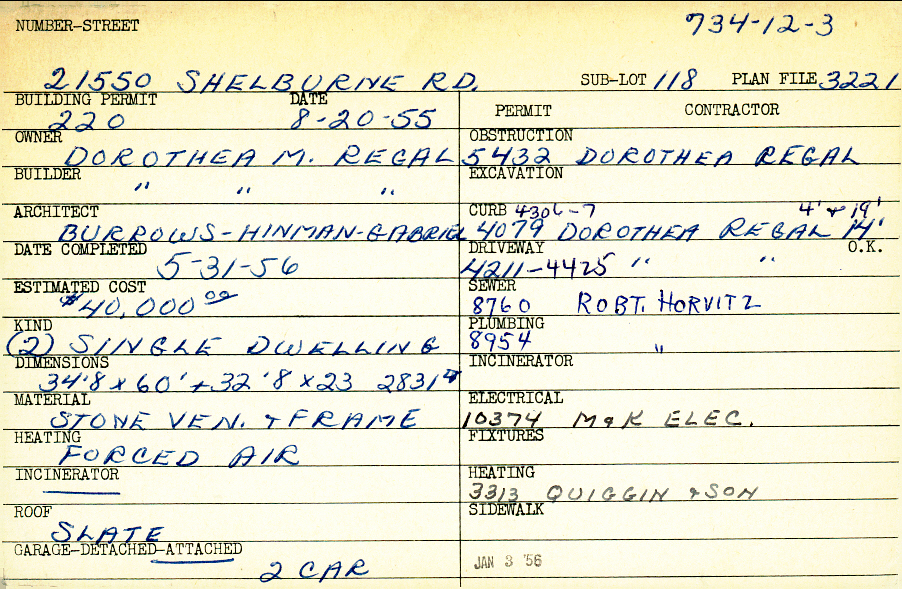 NUMBER-STREET 734-12-3
21550 SHELBURNE RD. SUB-LOT 118 PLAN FILE 3221
BUILDING PERMIT DATE
220 8-20-55
OWNER
DOROTHEA M. REGAL
BUILDER
" " "
ARCHITECT
BURROWS-HINMAN-GABRIEL
DATE COMPLETED
5-31-56
ESTIMATED COST
$40,000 00
KIND
(2) SINGLE DWELLING
DIMENSIONS
34'8 x 60' + 32'8 x 23 2831
MATERIAL
STONE VEN. & FRAME
HEATING
FORCED AIR
INCINERATOR
ROOF
SLATE
GARAGE-DETACHED-ATTACHED
2 CAR
PERMIT CONTRACTOR
OBSTRUCTION
5432 DOROTHEA REGAL
EXCAVATION
CURB 4306-7 4' & 19'
4079 DOROTHEA REGAL 14'
DRIVEWAY O.K.
4211-4425 " "
SEWER
8760 ROBT. HORVITZ
PLUMBING
8954 "
INCINERATOR
ELECTRICAL
10374 M&K ELEC.
FIXTURES
HEATING
3313 QUIGGIN & SON
SIDEWALK
JAN 3 '56